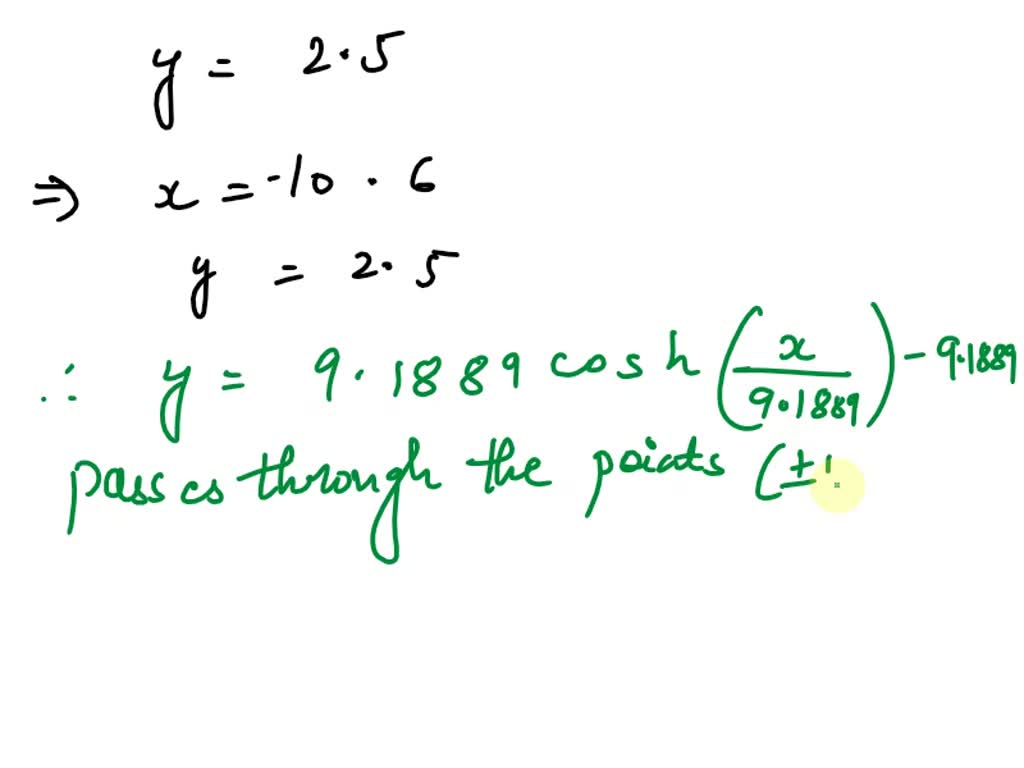 y = 2.5
⇒ x = -10.6
y = 2.5
∴ y = 9.1889 cosh (x/9.1889) - 9.1889
passes through the points (±1